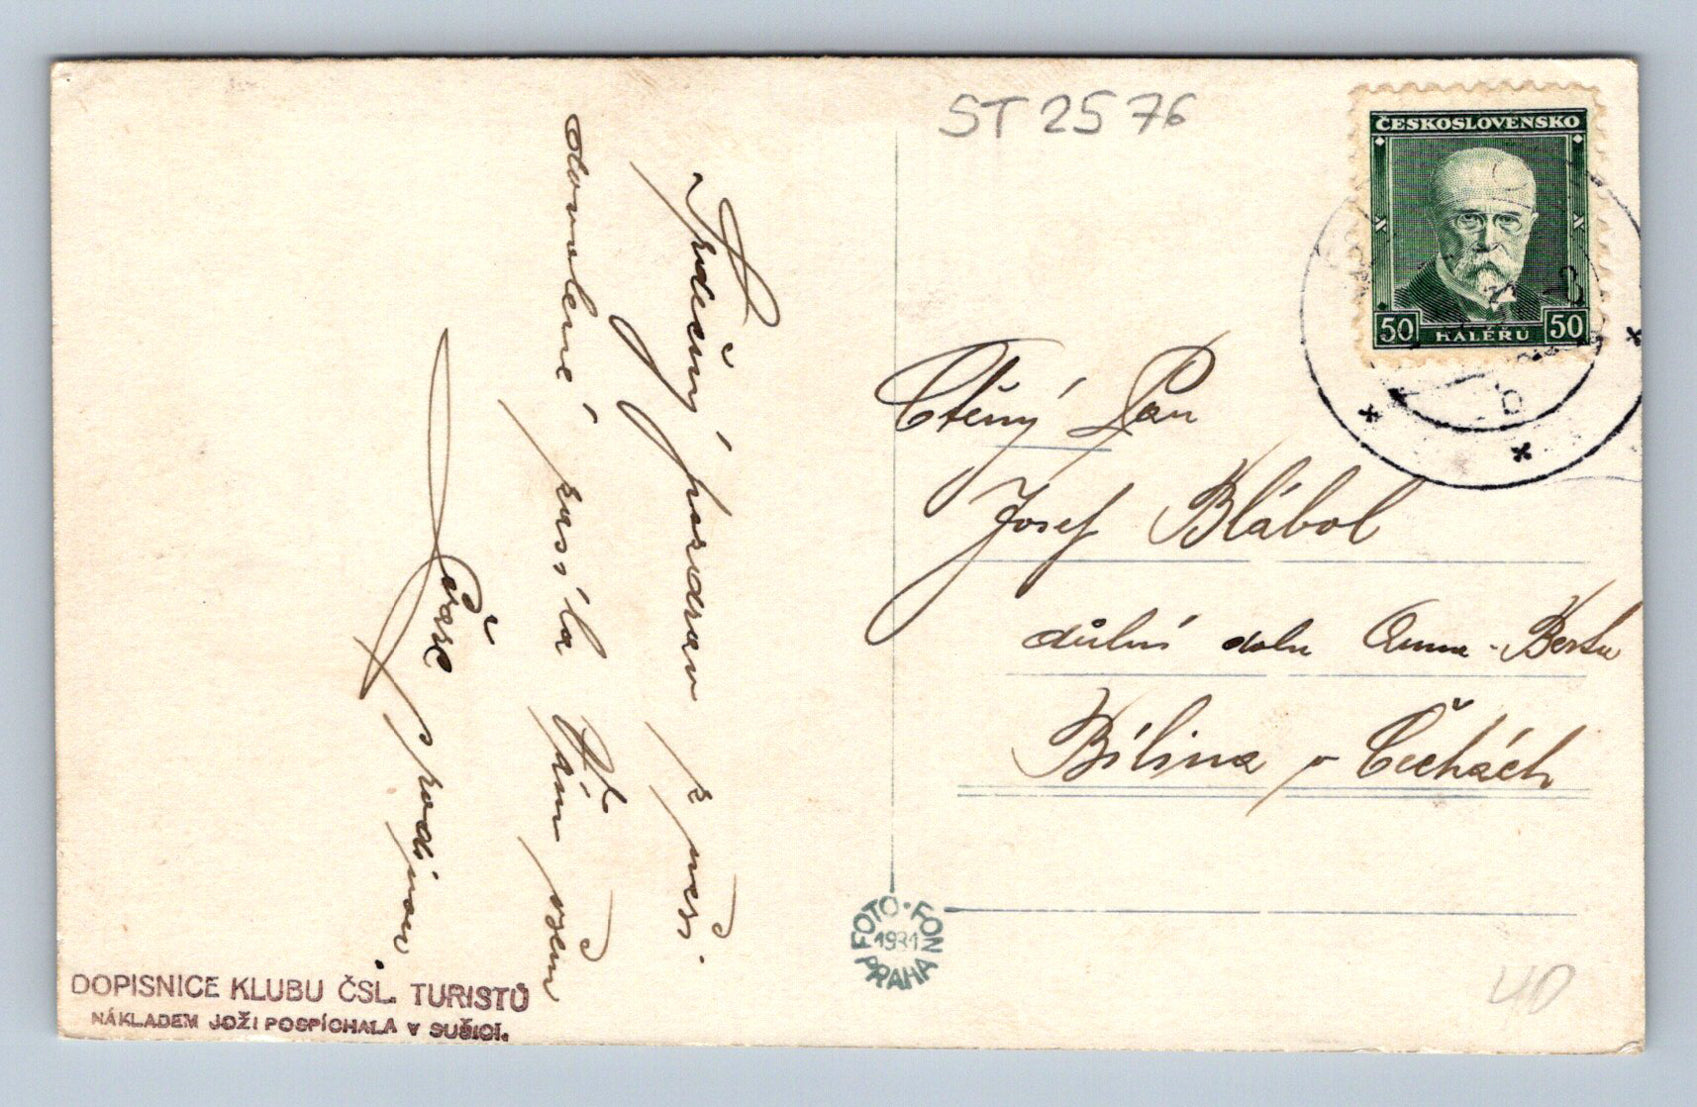 ST 2576
ČESKOSLOVENSKO
50 HALÉŘŮ 50
Srdečný pozdrav z naší
dovolené zasílá Vám všem
s rodinou.
Ctěný Pan
Josef Blábol
důlní dolu Anna-
Bílina v Čechách
FOTO-FON
1931
PRAHA
40
DOPISNICE KLUBU ČSL. TURISTŮ
NÁKLADEM JOŽI POSPÍCHALA V SUŠICI.